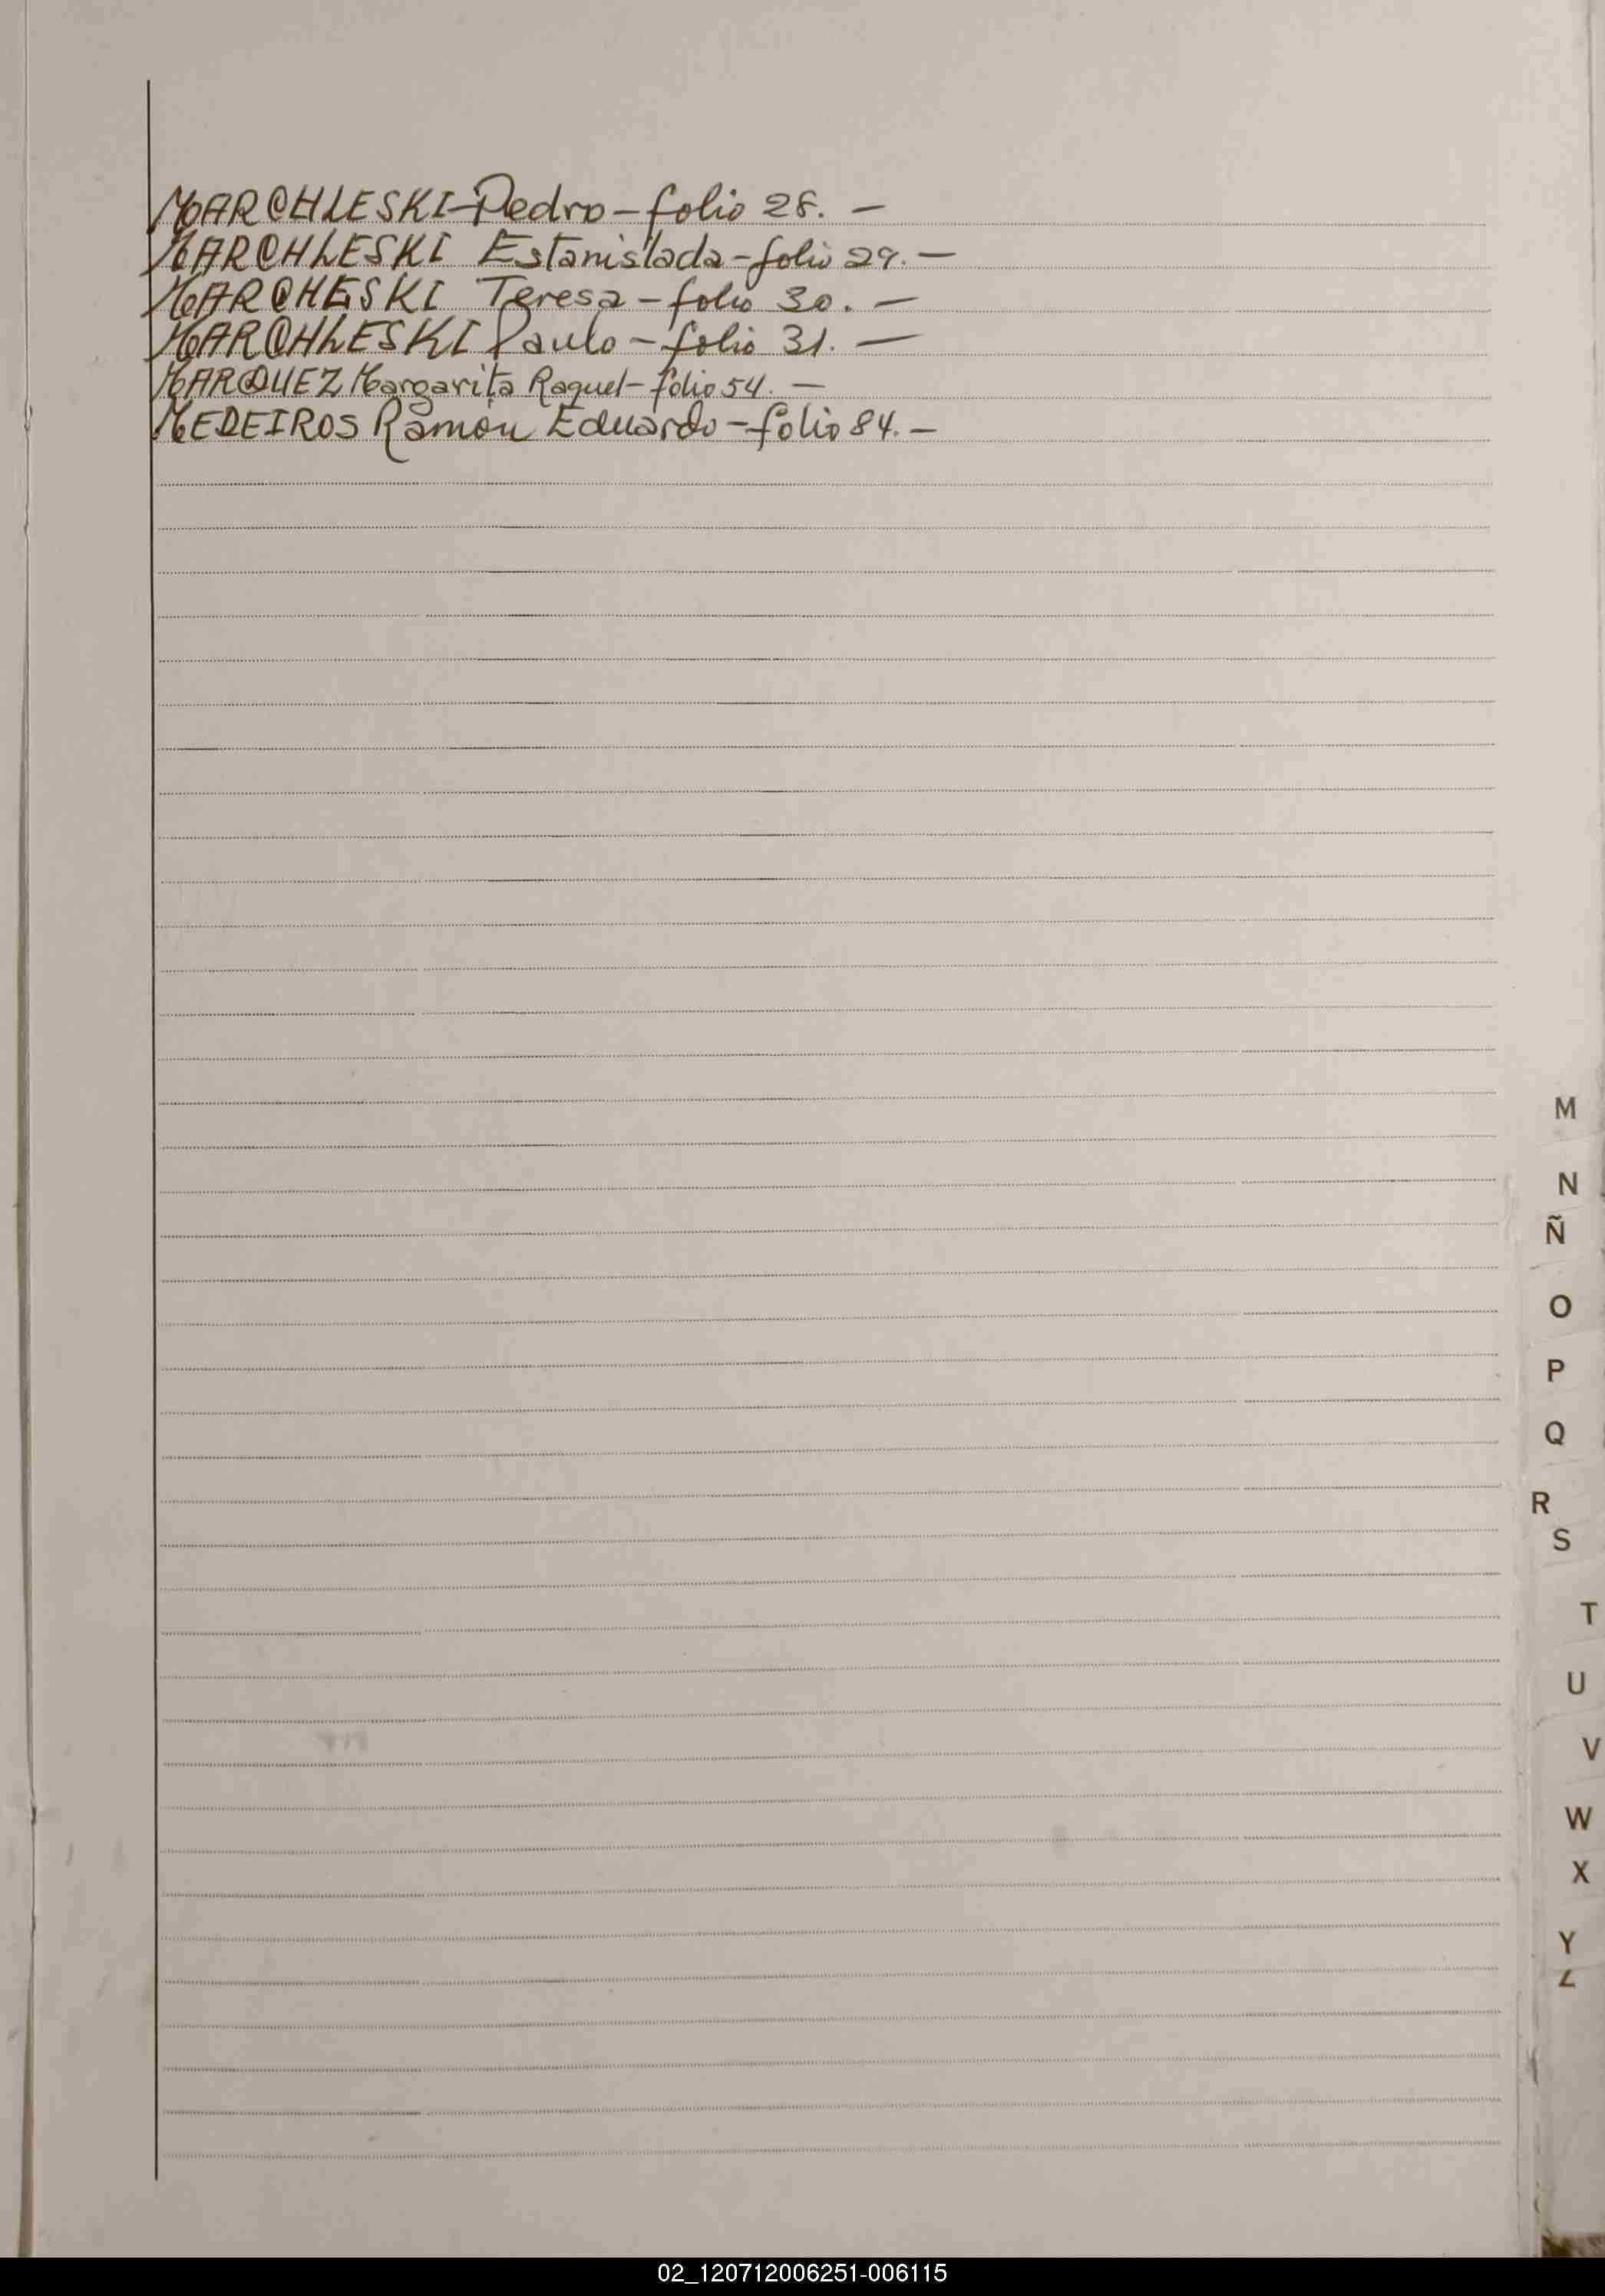 MARCHLESKI-Pedro-folio 28.-
MARCHLESKI Estanislada-folio 29.-
MARCHESKI Teresa-folio 30.-
MARCHLESKI Paulo-folio 31.-
MARQUEZ Margarita Raquel-folio 54.-
MEDEIROS Ramón Eduardo-folio 84.-
M
N
Ñ
O
P
Q
R
S
T
U
V
W
X
Y
Z
02_120712006251-006115